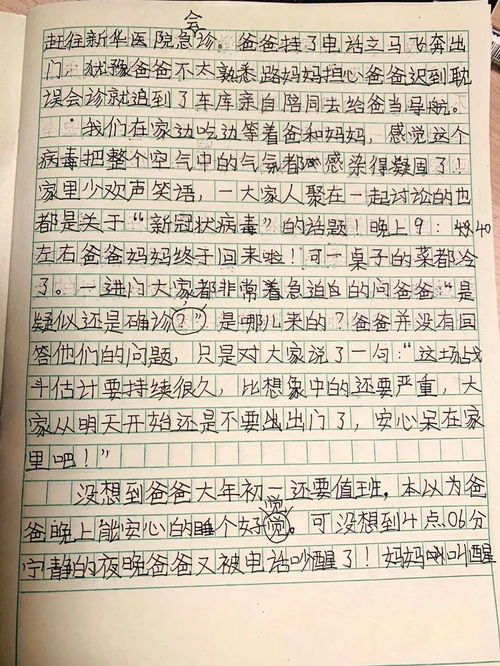 赶往新华医院急会诊。爸爸挂了电话立马飞奔出
门。犹豫爸爸不太熟悉路妈妈担心爸爸迟到耽
误会诊就追到了车库亲自陪同去给爸当导航。
我们在家边吃边等着爸和妈妈，感觉这个
病毒把整个空气中的气氛都感染得凝固了！
家里少欢声笑语，一大家人聚在一起讨论的也
都是关于“新冠状病毒”的话题！晚上9：40
左右爸爸妈妈终于回来啦！可一桌子的菜都冷
了。一进门大家都非常着急迫白的问爸爸“是
疑似还是确诊？”是哪儿来的？爸爸并没有回
答他们的问题，只是对大家说了一句：“这场战
斗估计要持续很久，比想象中的还要严重，大
家从明天开始还是不要出出门了，安心呆在家
里吧！”
没想到爸爸大年初一还要值班，本以为爸
爸晚上能安心的睡个好觉。可没想到4点06分
宁静的夜晚爸爸又被电话吵醒了！妈妈叫醒